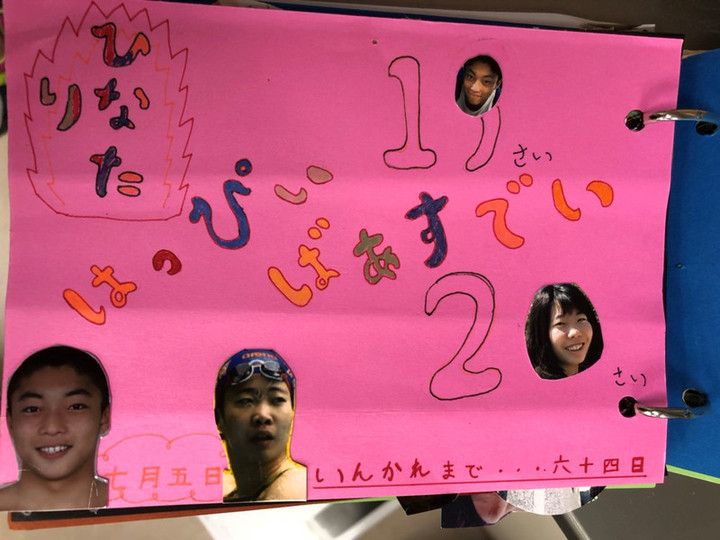 ひなた
り
19さい
はっぴい
ばあすでい
2さい
arena
七月五日
いんかれまで....六十四日